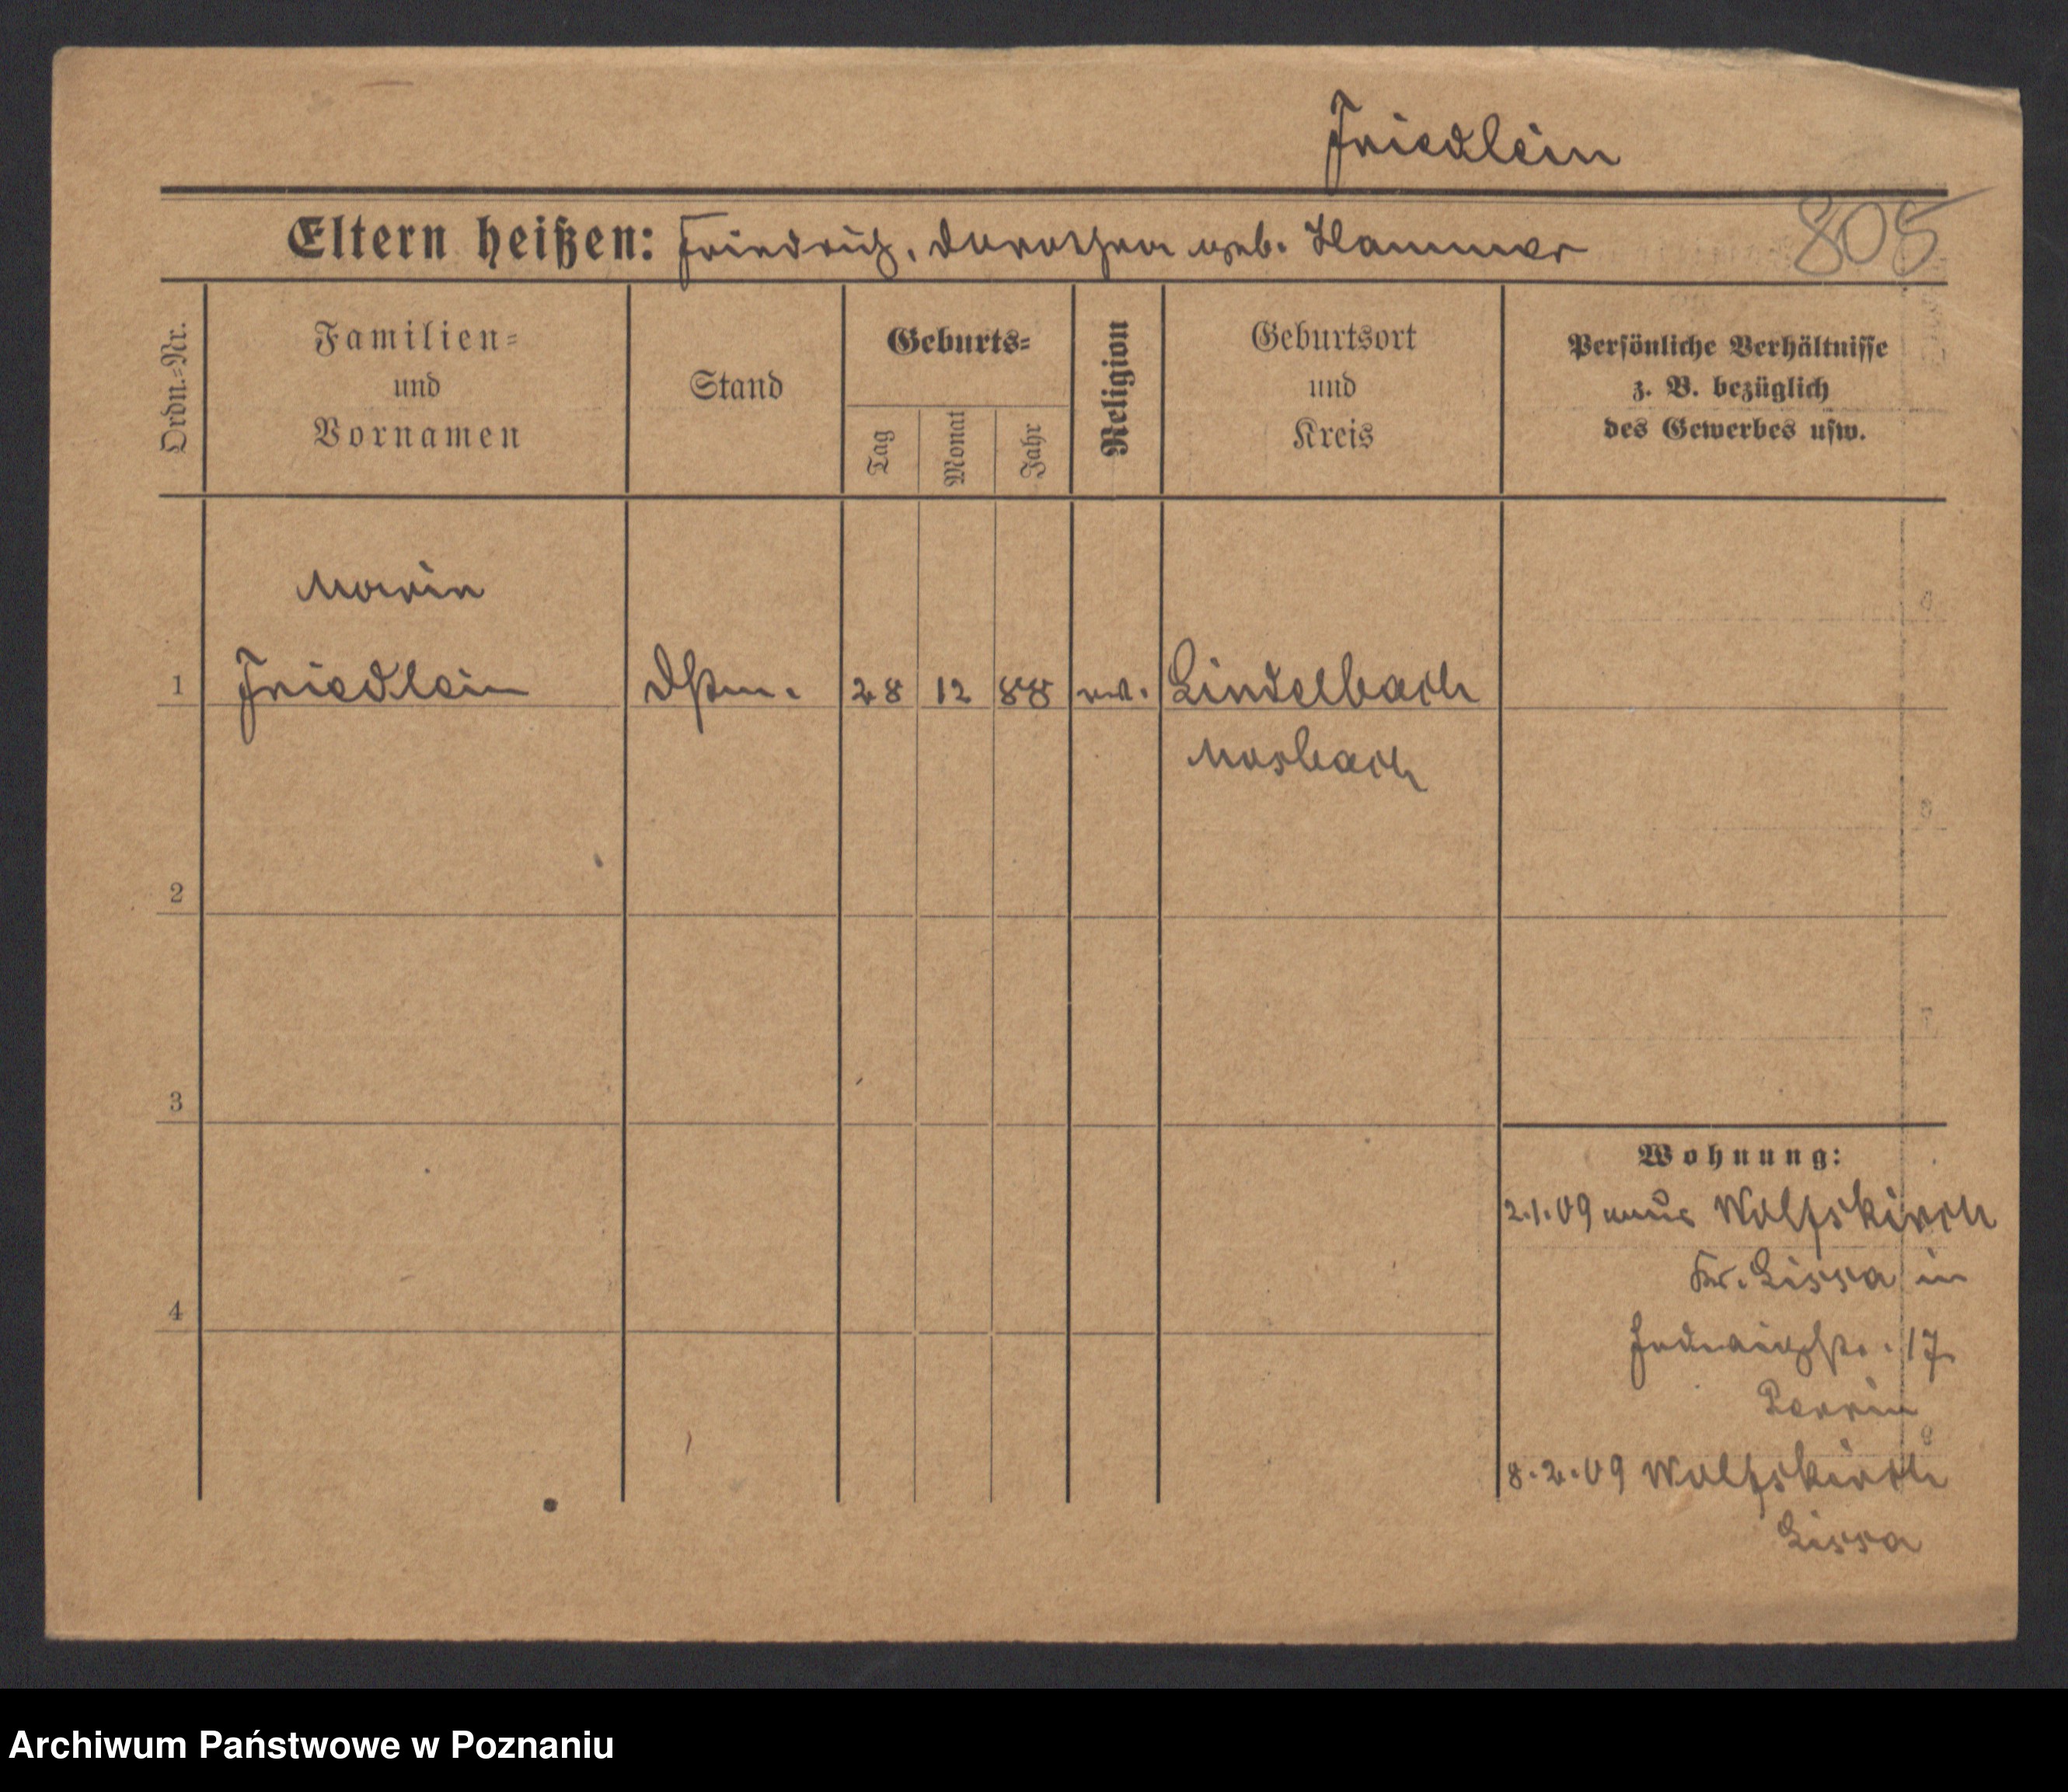 Friedlein
Eltern heißen: Friedrich, Dorothea geb. Hammer
805
Ordn.=Nr.
Familien=
und
Vornamen
Stand
Geburts=
Tag
Monat
Jahr
Religion
Geburtsort
und
Kreis
Persönliche Verhältnisse
z. B. bezüglich
des Gewerbes usw.
Maria
1 Friedlein Dstm. 28 12 88 ev. Lindelbach
Mosbach
2
3
4
Wohnung:
2.1.09 aus Wolfskirch
Kr. Lissa in
Hedwigstr. 17
8.2.09 Wolfskirch
Lissa
Archiwum Państwowe w Poznaniu